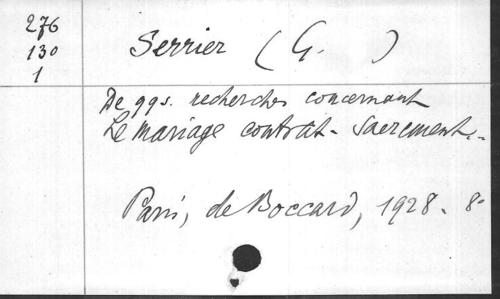 276
130
1
Serrier (G. )
De qqs. recherches concernant
Le mariage contrat-Sacrement.-
Paris, de Boccard, 1928. 8°